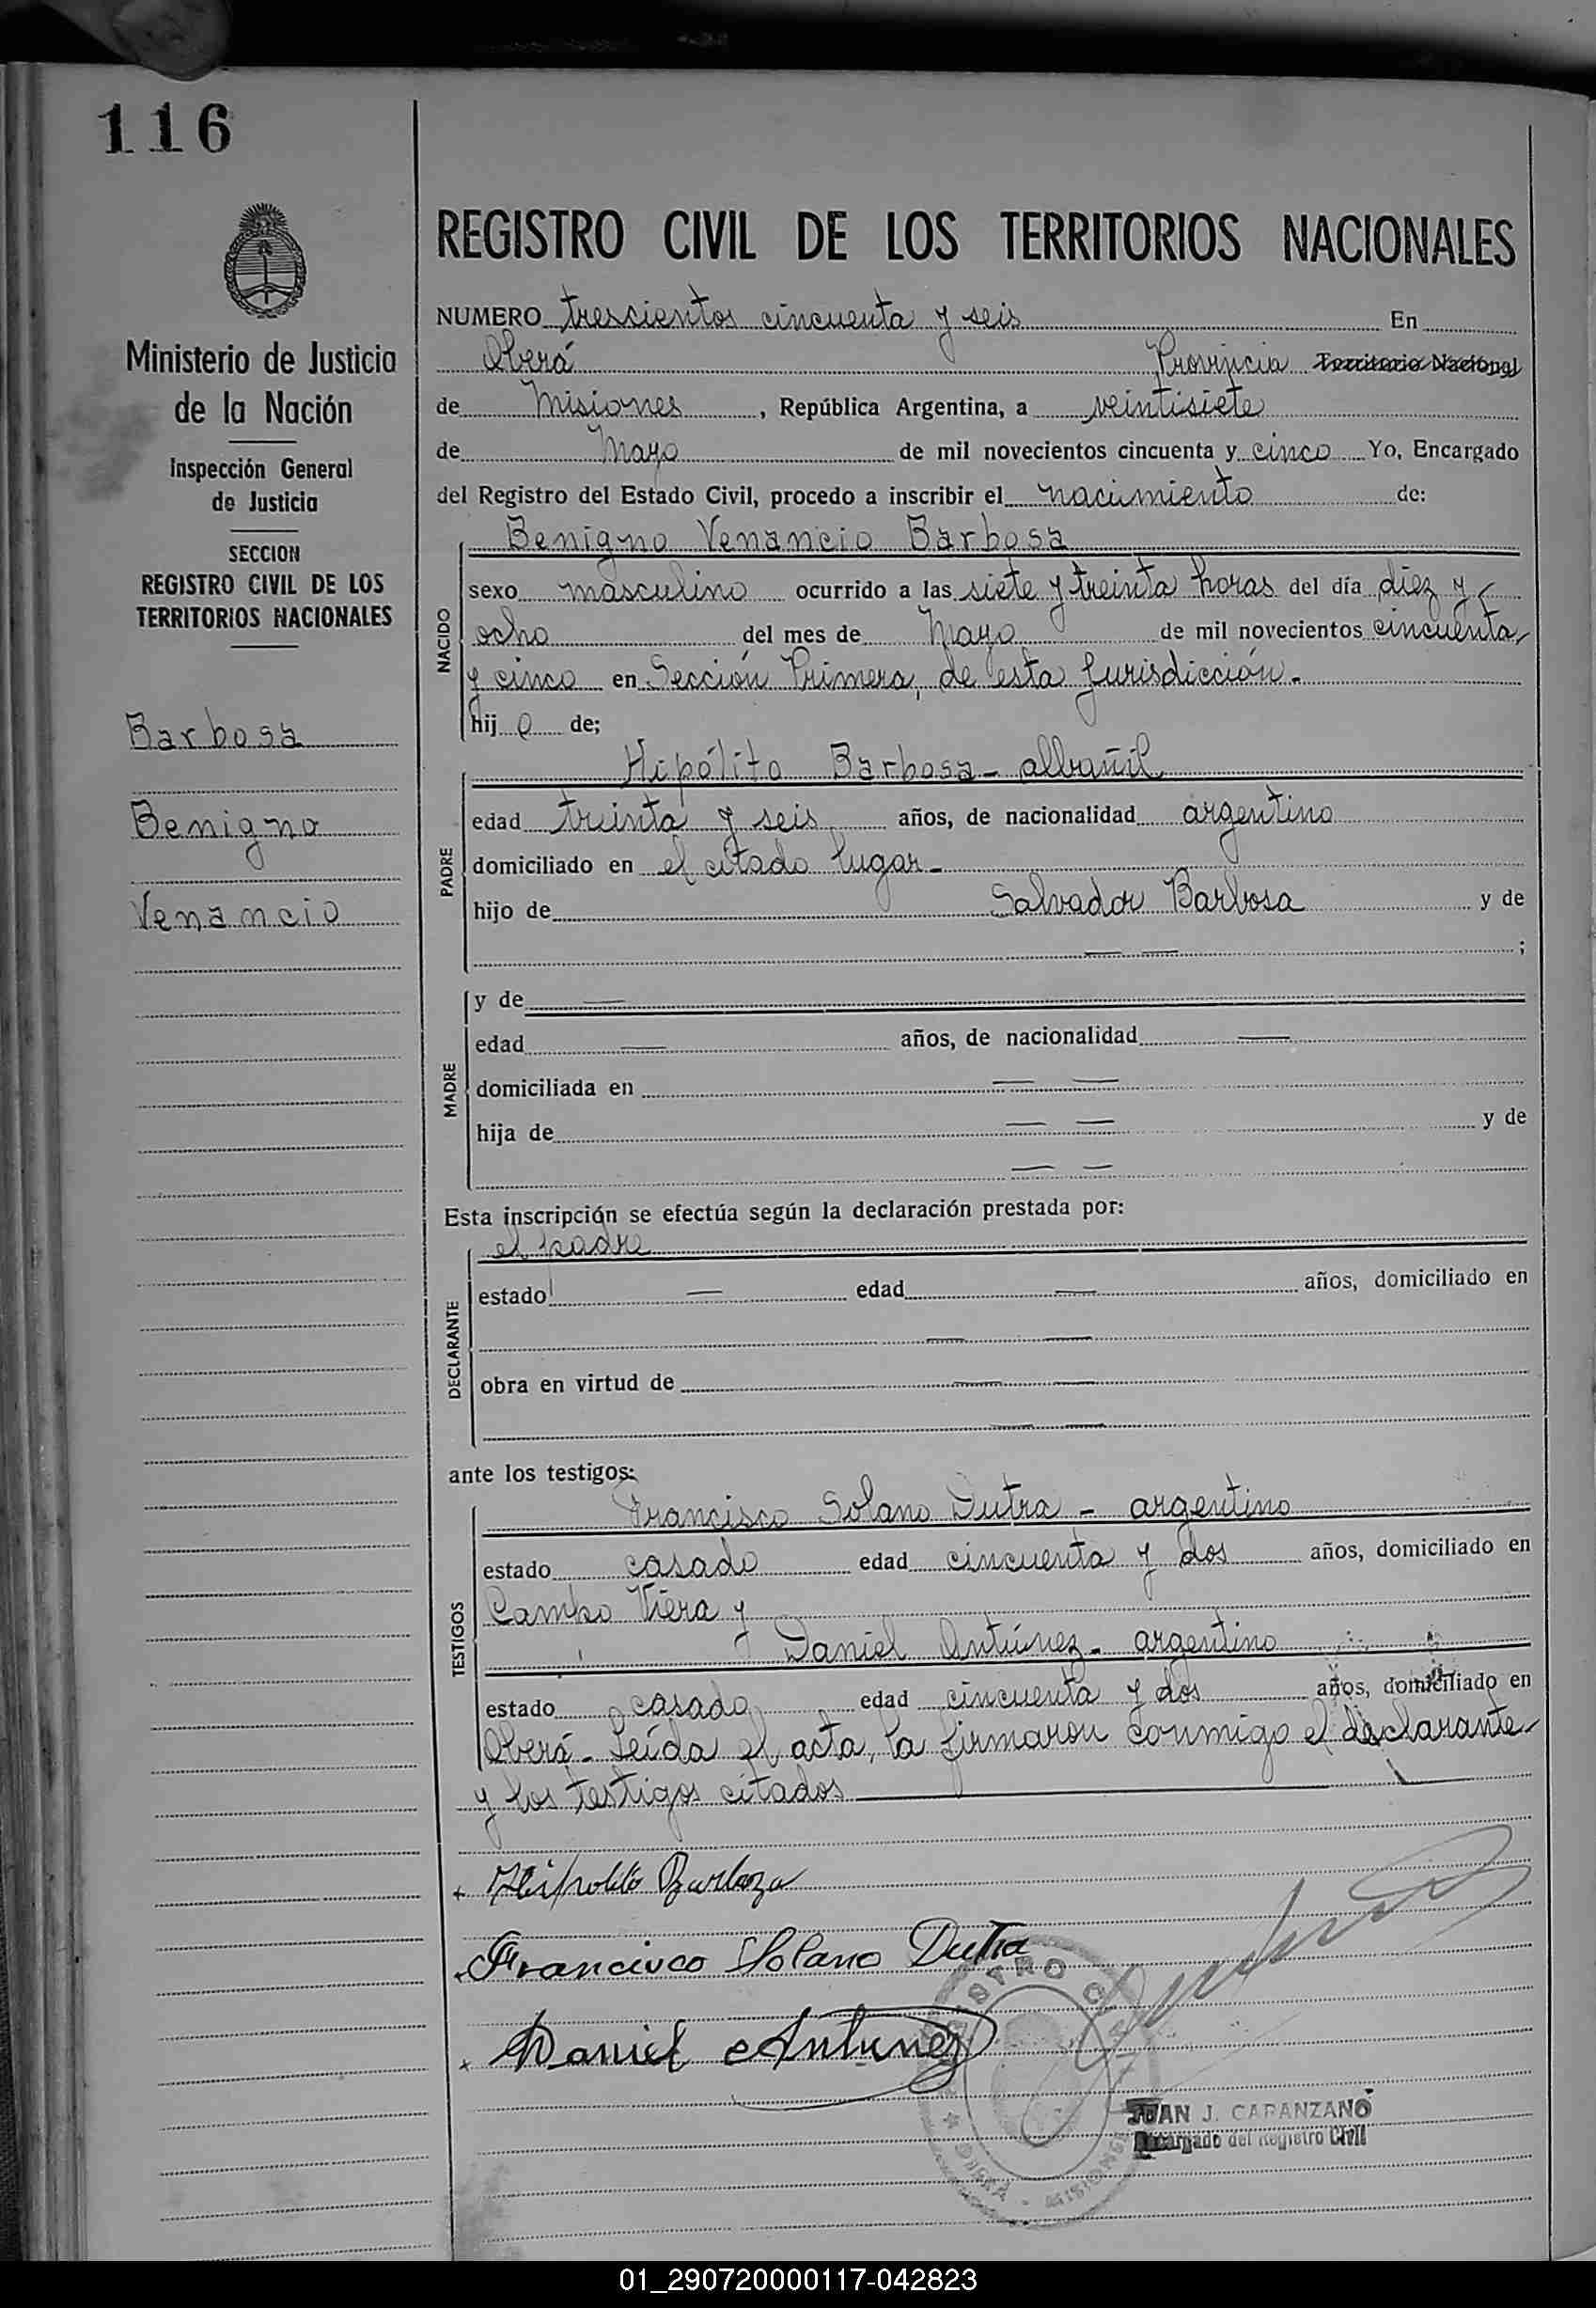 116
Ministerio de Justicia
de la Nación
Inspección General
de Justicia
SECCION
REGISTRO CIVIL DE LOS
TERRITORIOS NACIONALES
Barbosa
Benigno
Venancio
REGISTRO CIVIL DE LOS TERRITORIOS NACIONALES
NUMERO trescientos cincuenta y seis En
Oberá Provincia Territorio Nacional
de Misiones, República Argentina, a veintisiete
de Mayo de mil novecientos cincuenta y cinco Yo, Encargado
del Registro del Estado Civil, procedo a inscribir el nacimiento de:
NACIDO
Benigno Venancio Barbosa
sexo masculino ocurrido a las siete y treinta horas del día diez y
ocho del mes de Mayo de mil novecientos cincuenta
y cinco en Sección Primera, de esta Jurisdicción.-
hijo de;
PADRE
Hipólito Barbosa - albañil
edad treinta y seis años, de nacionalidad argentino
domiciliado en el citado lugar -
hijo de Salvador Barbosa y de
— — ;
MADRE
y de —
edad — años, de nacionalidad —
domiciliada en — —
hija de — — y de
— —
Esta inscripción se efectúa según la declaración prestada por:
DECLARANTE
el padre
estado — edad — años, domiciliado en
— —
obra en virtud de — —
— —
ante los testigos:
TESTIGOS
Francisco Solano Dutra - argentino
estado casado edad cincuenta y dos años, domiciliado en
Campo Viera y
Daniel Antúnez - argentino
estado casado edad cincuenta y dos años, domiciliado en
Oberá - Leída el acta, la firmaron conmigo el declarante
y los testigos citados
Hipolito Barboza
Francisco Solano Dutra
Daniel Antunez
REGISTRO C
OBERA - MISIONES
JUAN J. CAPANZANO
Encargado del Registro Civil
01_290720000117-042823